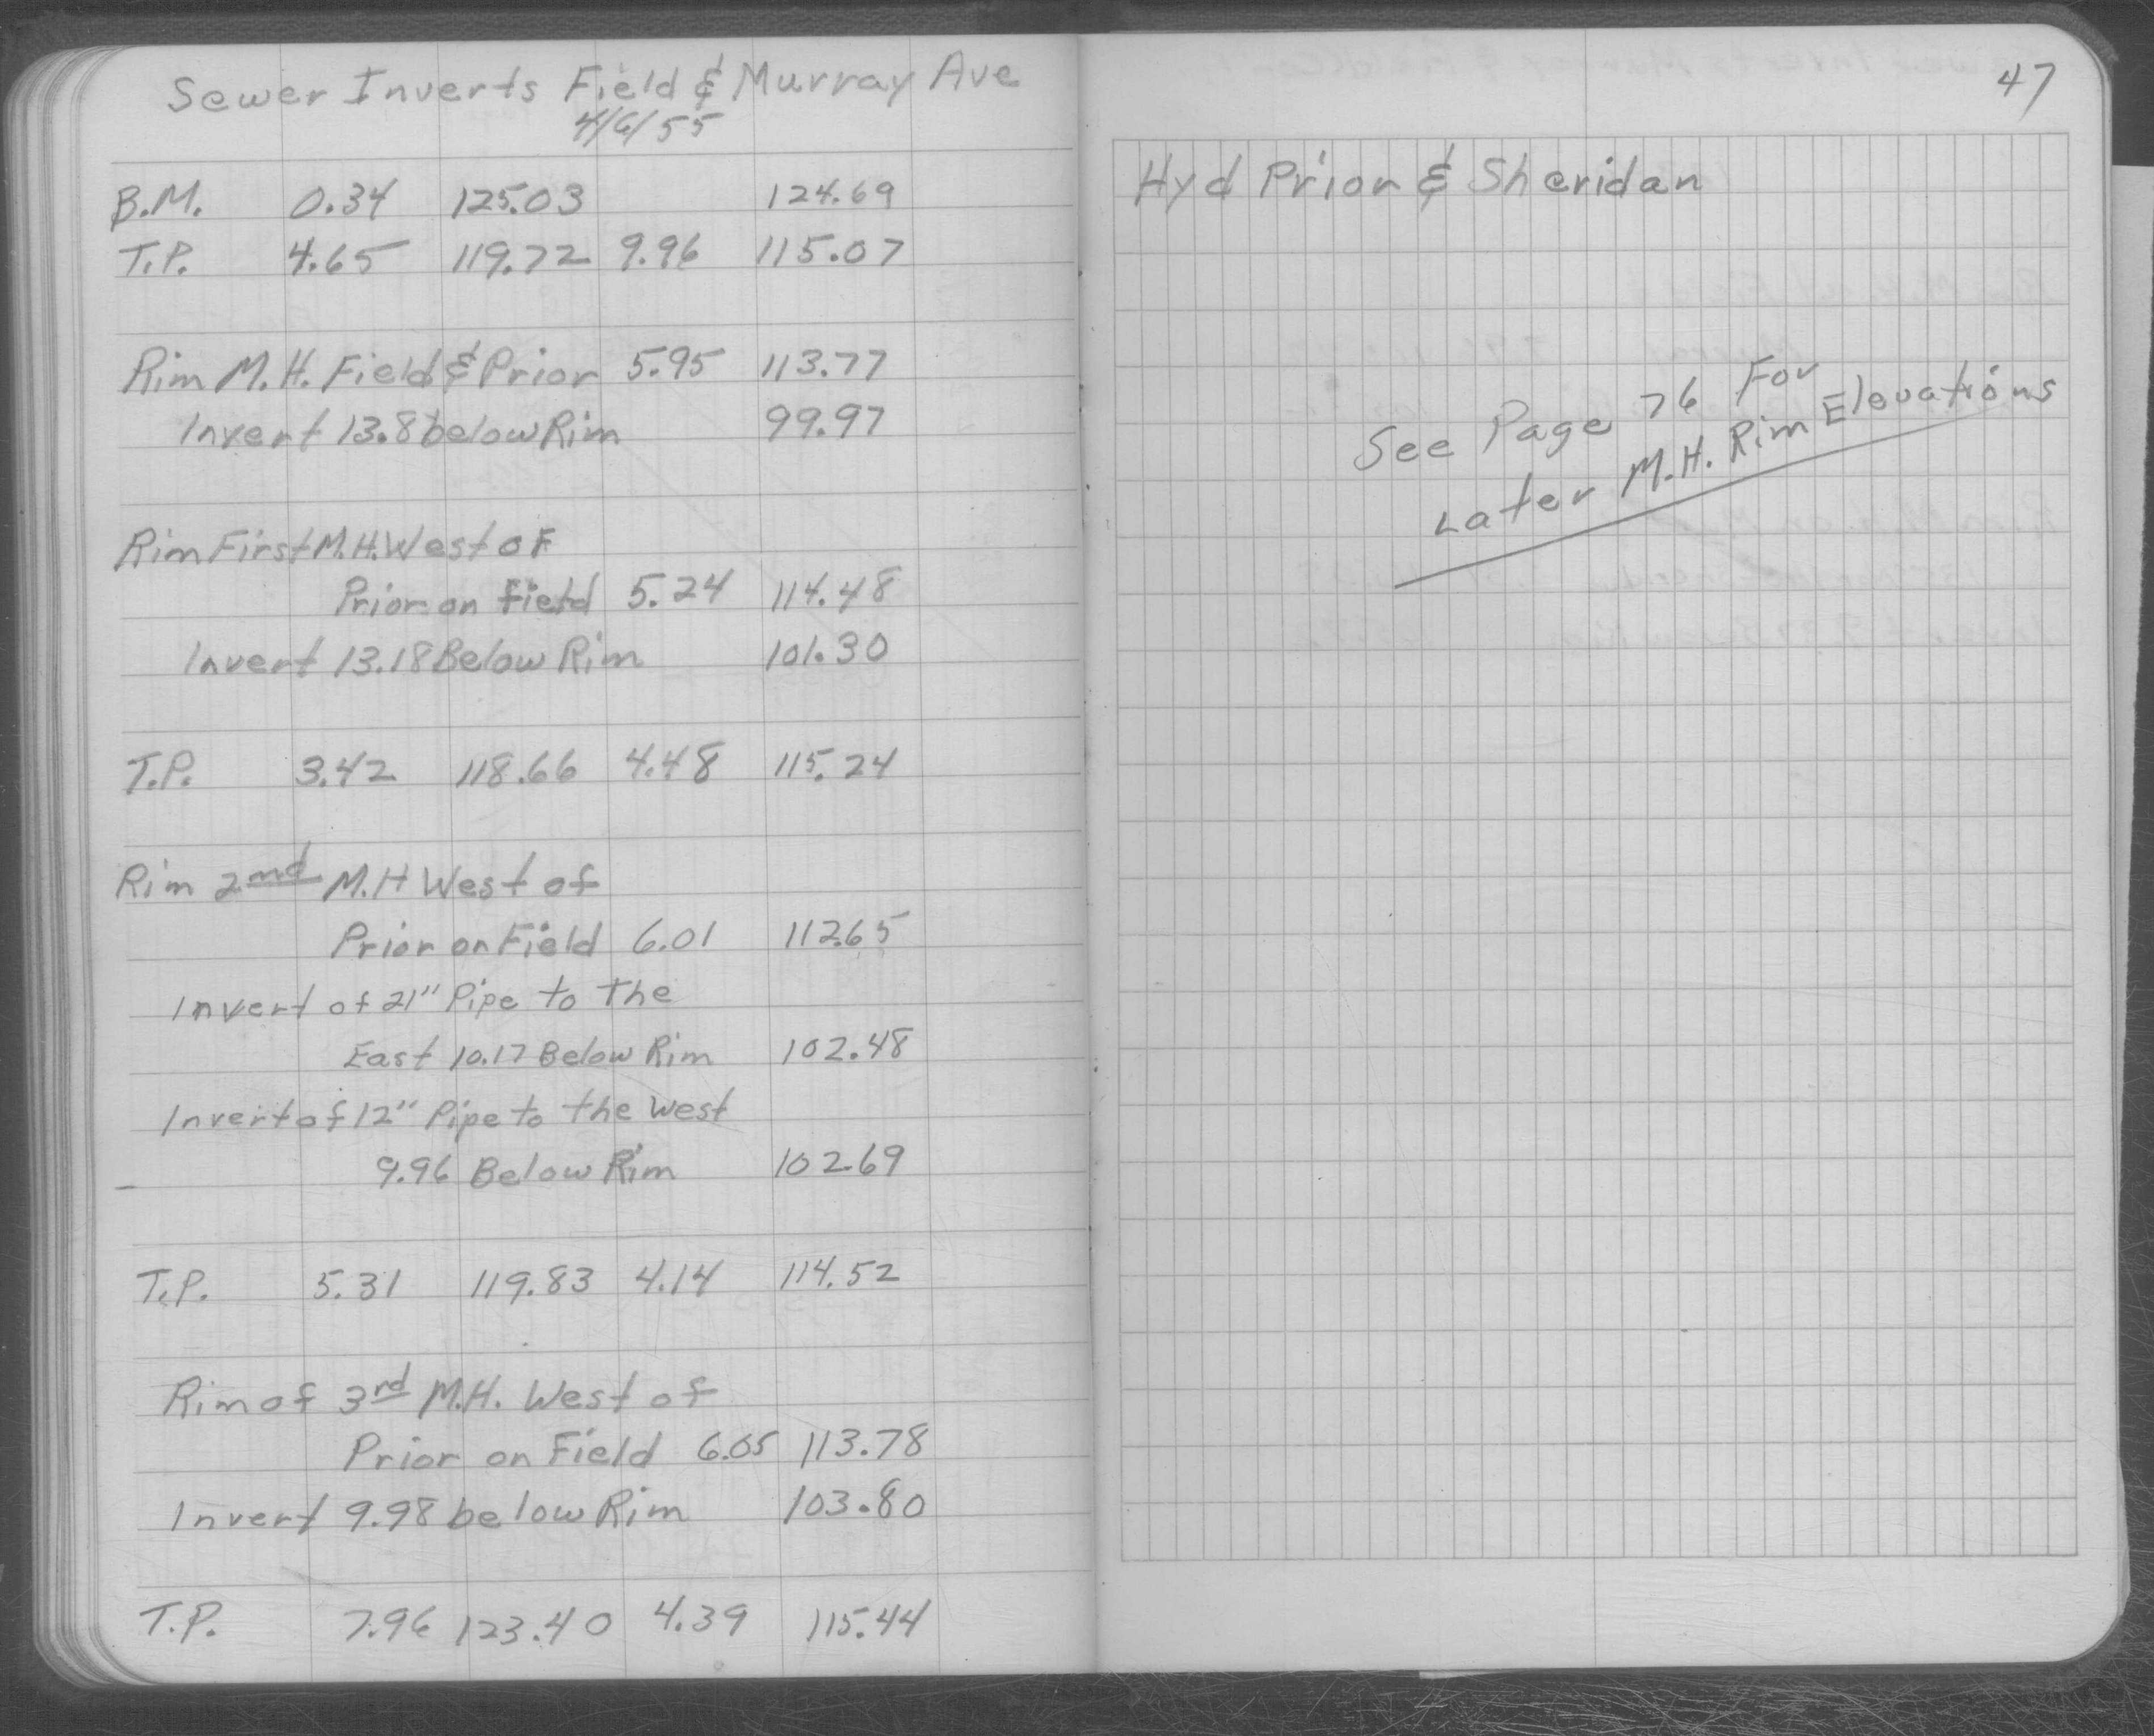 Sewer Inverts Field & Murray Ave
4/6/55
B.M. 0.34 125.03 124.69
T.P. 4.65 119.72 9.96 115.07
Rim M.H. Field & Prior 5.95 113.77
Invert 13.8 below Rim 99.97
Rim First M.H. West of
Prior on Field 5.24 114.48
Invert 13.18 Below Rim 101.30
T.P. 3.42 118.66 4.48 115.24
Rim 2nd M.H West of
Prior on Field 6.01 112.65
Invert of 21" Pipe to the
East 10.17 Below Rim 102.48
Invert of 12" Pipe to the West
9.96 Below Rim 102.69
T.P. 5.31 119.83 4.14 114.52
Rim of 3rd M.H. West of
Prior on Field 6.05 113.78
Invert 9.98 below Rim 103.80
T.P. 7.96 123.40 4.39 115.44
47
Hyd Prior & Sheridan
See Page 76 For
Later M.H. Rim Elevations